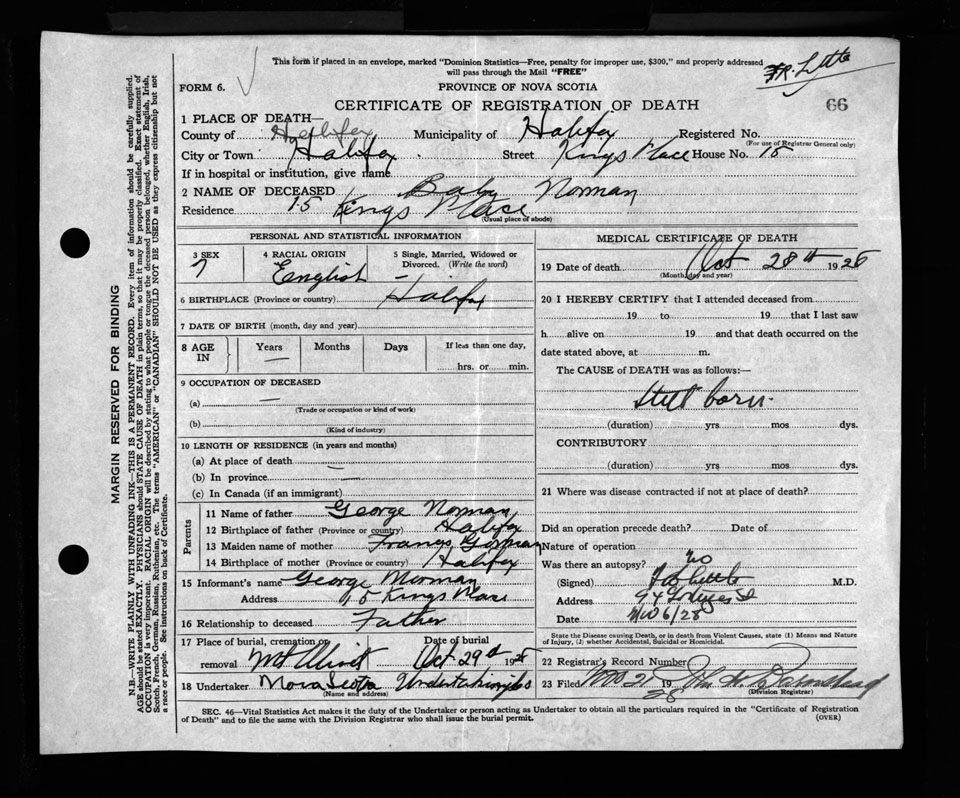 This form if placed in an envelope, marked "Dominion Statistics—Free, penalty for improper use, $300," and properly addressed
will pass through the Mail "FREE"
FORM 6.
PROVINCE OF NOVA SCOTIA
66
CERTIFICATE OF REGISTRATION OF DEATH
1 PLACE OF DEATH—
County of Halifax Municipality of Halifax Registered No.
(For use of Registrar General only)
City or Town Halifax Street Kings Place House No. 15
If in hospital or institution, give name
2 NAME OF DECEASED Baby Norman
Residence 15 Kings Place
(Usual place of abode)
PERSONAL AND STATISTICAL INFORMATION
3 SEX 4 RACIAL ORIGIN 5 Single, Married, Widowed or
Divorced. (Write the word)
English
6 BIRTHPLACE (Province or country) Halifax
7 DATE OF BIRTH (month, day and year)
8 AGE IN Years Months Days If less than one day,
— hrs. or min.
9 OCCUPATION OF DECEASED
(a) —
(Trade or occupation or kind of work)
(b)
(Kind of industry)
10 LENGTH OF RESIDENCE (in years and months)
(a) At place of death —
(b) In province —
(c) In Canada (if an immigrant)
Parents
11 Name of father George Norman
12 Birthplace of father (Province or country) Halifax
13 Maiden name of mother Frances Gorman
14 Birthplace of mother (Province or country) Halifax
15 Informant's name George Norman
Address 15 Kings Place
16 Relationship to deceased Father
17 Place of burial, cremation or Date of burial
removal Mt Olivet Oct 29th 1928
18 Undertaker Nova Scotia Undertaking Co
(Name and address)
MEDICAL CERTIFICATE OF DEATH
19 Date of death Oct 28th 1928
(Month, day and year)
20 I HEREBY CERTIFY that I attended deceased from
19 to 19 that I last saw
h alive on 19 and that death occurred on the
date stated above, at m.
The CAUSE of DEATH was as follows:—
Still born
(duration) yrs mos dys.
CONTRIBUTORY
(duration) yrs mos dys.
21 Where was disease contracted if not at place of death?
Did an operation precede death? Date of
Nature of operation
Was there an autopsy? no
(Signed) M.D.
Address 94
Date
State the Disease causing Death, or in death from Violent Causes, state (1) Means and Nature
of Injury, (2) whether Accidental, Suicidal or Homicidal.
22 Registrar's Record Number
23 Filed 19 John
(Division Registrar)
SEC. 46—Vital Statistics Act makes it the duty of the Undertaker or person acting as Undertaker to obtain all the particulars required in the "Certificate of Registration
of Death" and to file the same with the Division Registrar who shall issue the burial permit.
(OVER)
MARGIN RESERVED FOR BINDING
N.B.—WRITE PLAINLY WITH UNFADING INK—THIS IS A PERMANENT RECORD. Every item of information should be carefully supplied.
AGE should be stated EXACTLY. PHYSICIANS should STATE CAUSE OF DEATH in plain terms, so that it may be properly classified. Exact statement of
OCCUPATION is very important. RACIAL ORIGIN will be described by stating to what people or tongue the deceased person belonged, whether English, Irish,
Scotch, French, German, Russian, Ruthenian, etc. The terms "AMERICAN" or "CANADIAN" SHOULD NOT BE USED as they express citizenship but not
a race or people. See instructions on back of Certificate.